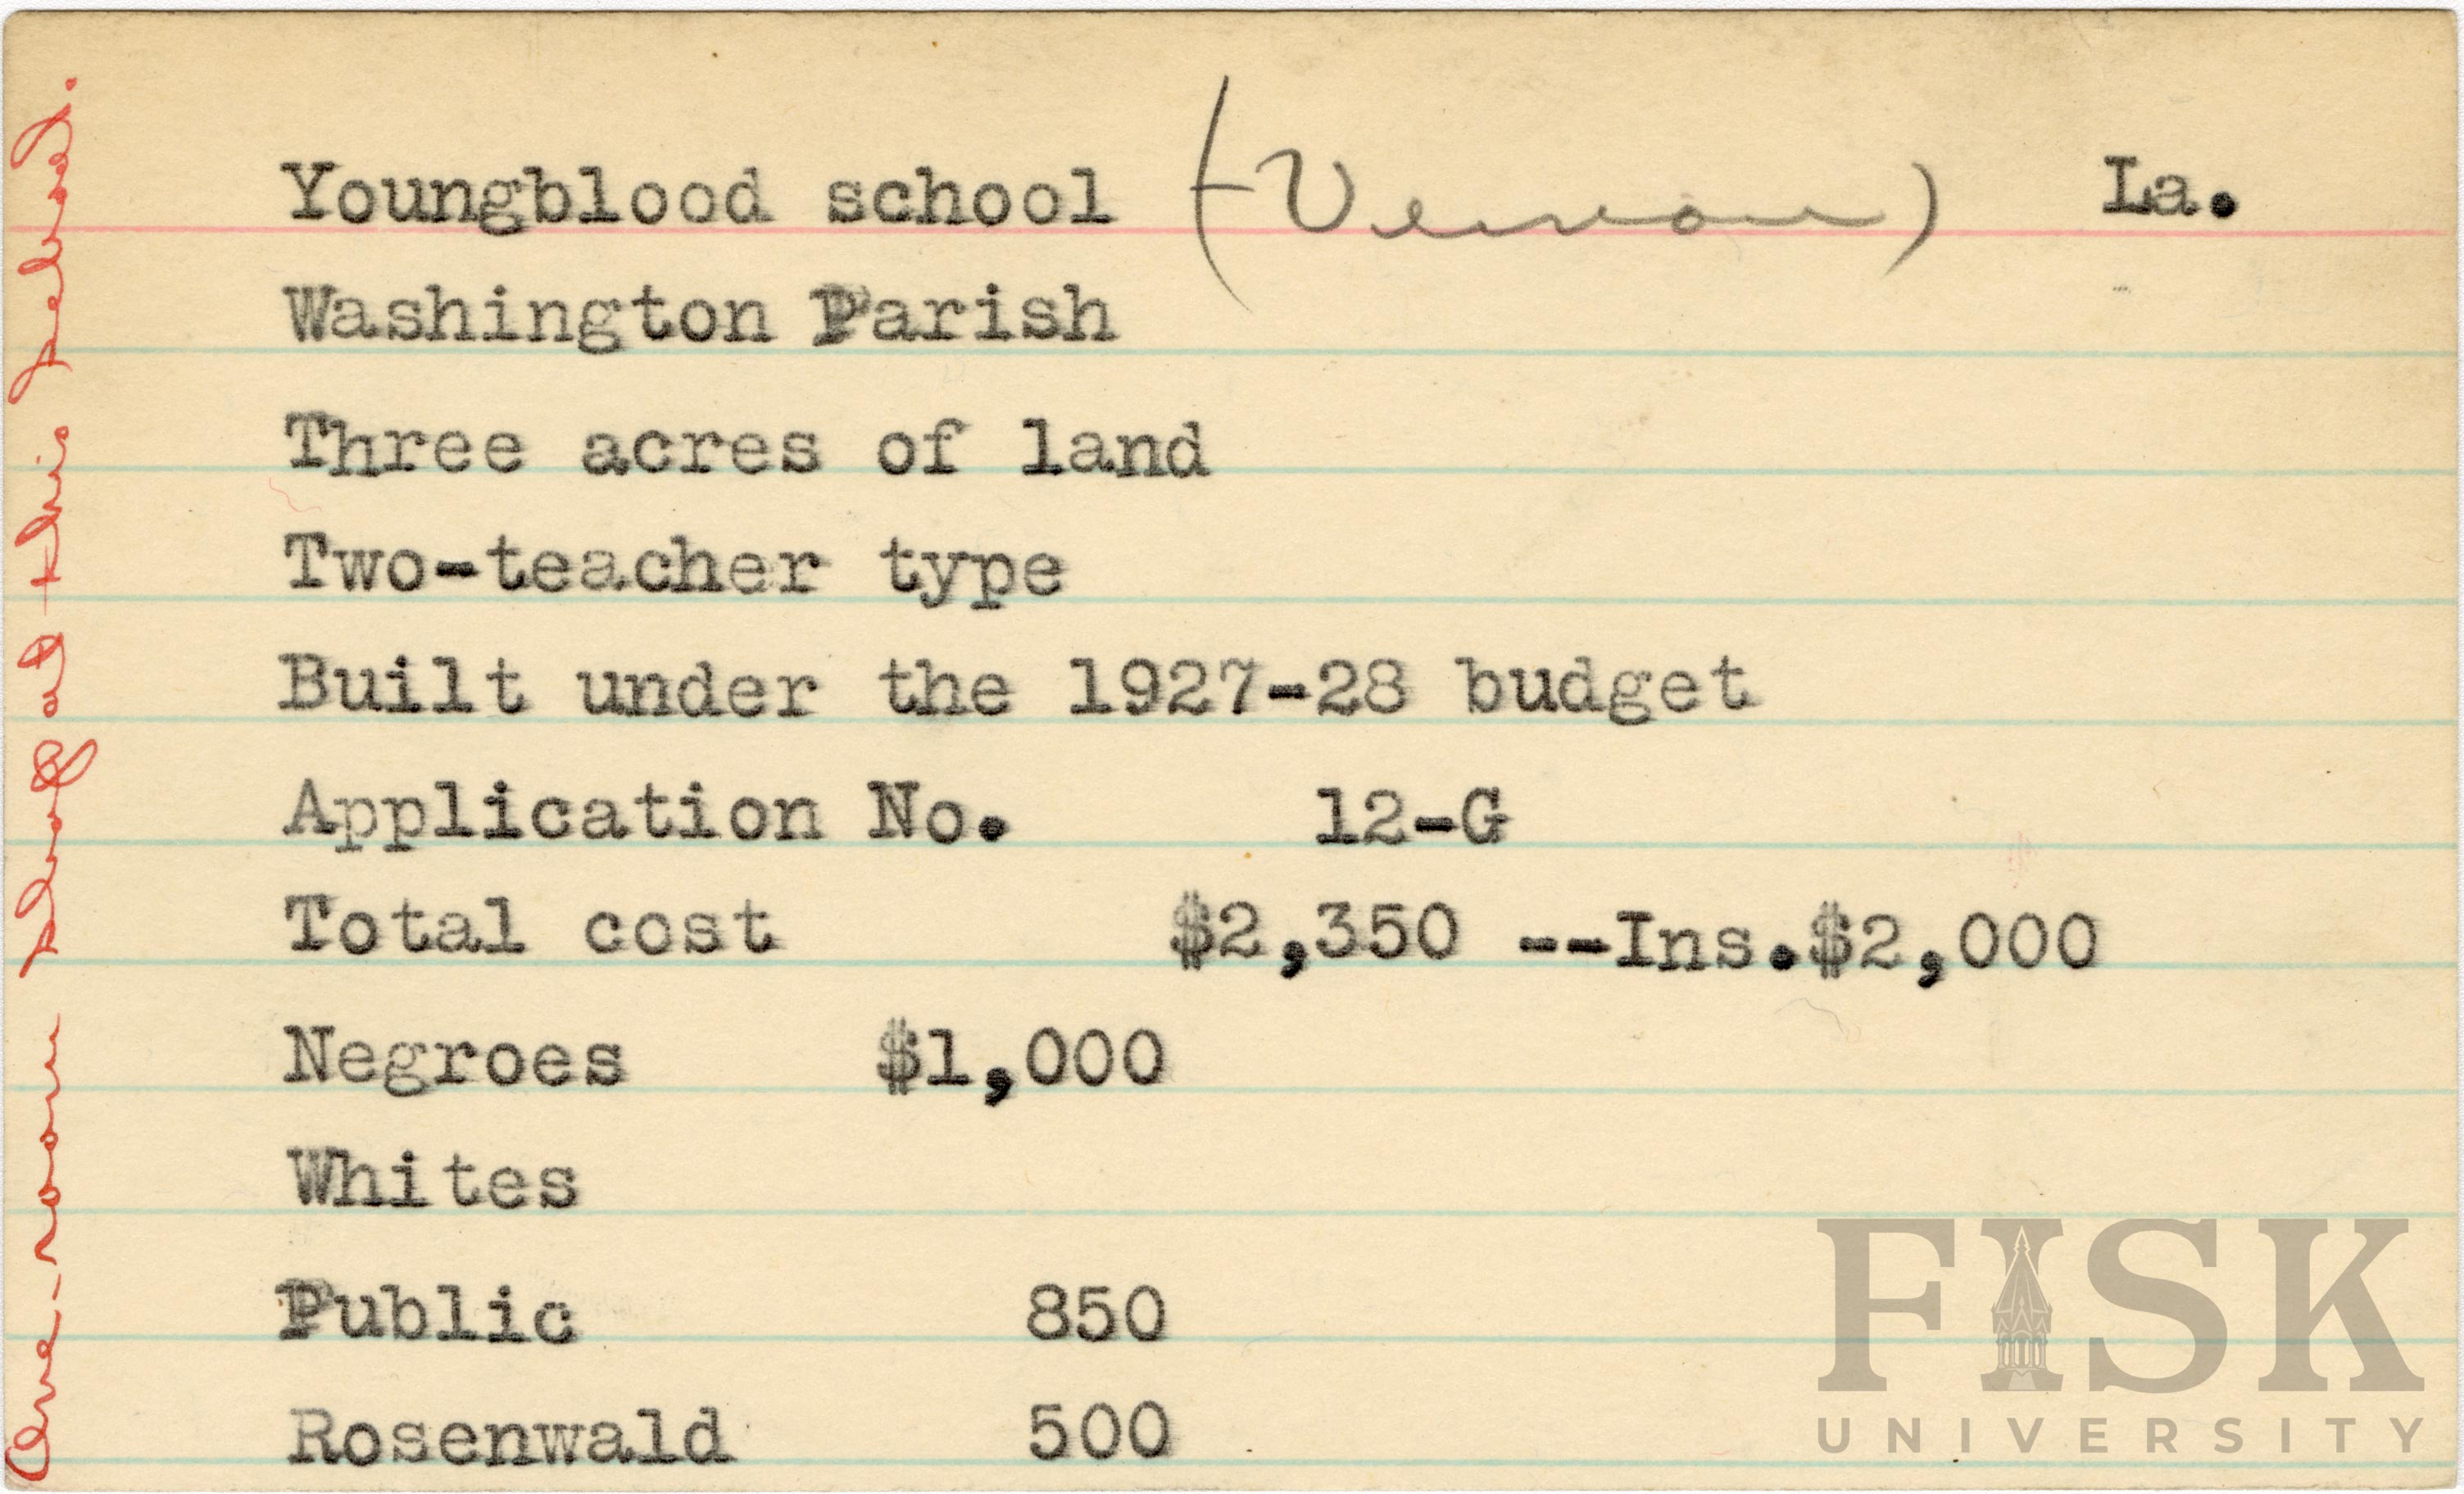 Youngblood school (Vernon) La.
Washington Parish
Three acres of land
Two-teacher type
Built under the 1927-28 budget
Application No. 12-G
Total cost $2,350 --Ins.$2,000
Negroes $1,000
Whites
Public 850
Rosenwald 500
One-room shop at this school.
FISK
UNIVERSITY